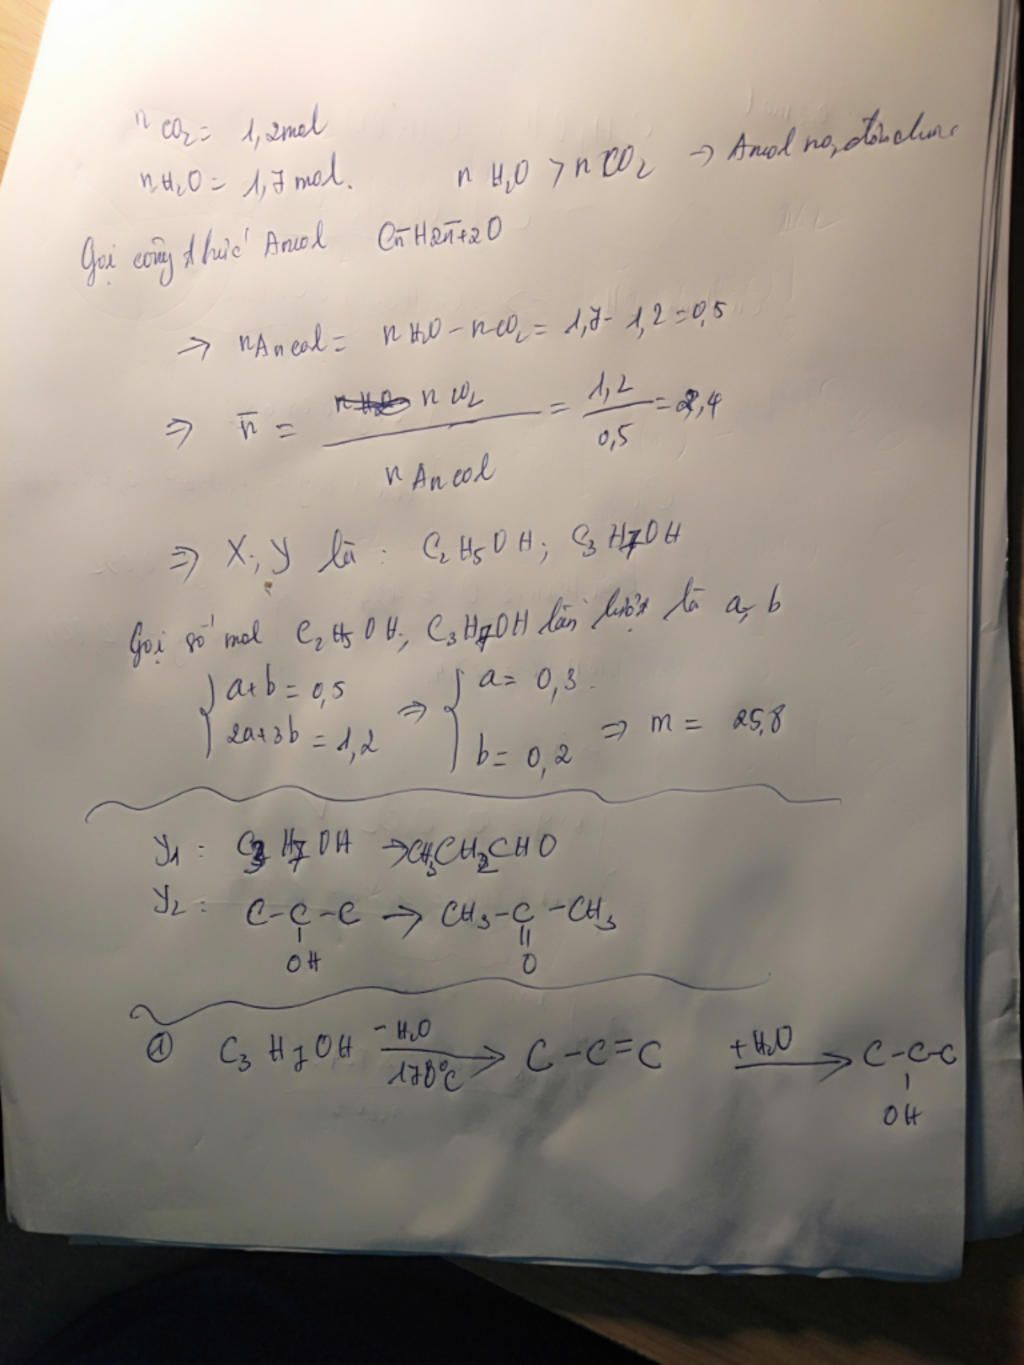 nCO2 = 1,2mol
nH2O = 1,7 mol. nH2O > nCO2 → Ancol no, đơn chức
Gọi công thức Ancol Cn̄H2n̄+2O
⇒ nAncol = nH2O - nCO2 = 1,7 - 1,2 = 0,5
⇒ n̄ = nCO2 / nAncol = 1,2 / 0,5 = 2,4
⇒ X, Y là : C2H5OH; C3H7OH
Gọi số mol C2H5OH, C3H7OH lần lượt là a, b
{ a+b = 0,5 ⇒ { a = 0,3.
2a+3b = 1,2 b = 0,2 ⇒ m = 25,8
Y1 : C3H7OH → CH3CH2CHO
Y2 : C-C-C → CH3-C-CH3
OH O
① C3H7OH -H2O 170°C → C-C=C +H2O → C-C-C
OH